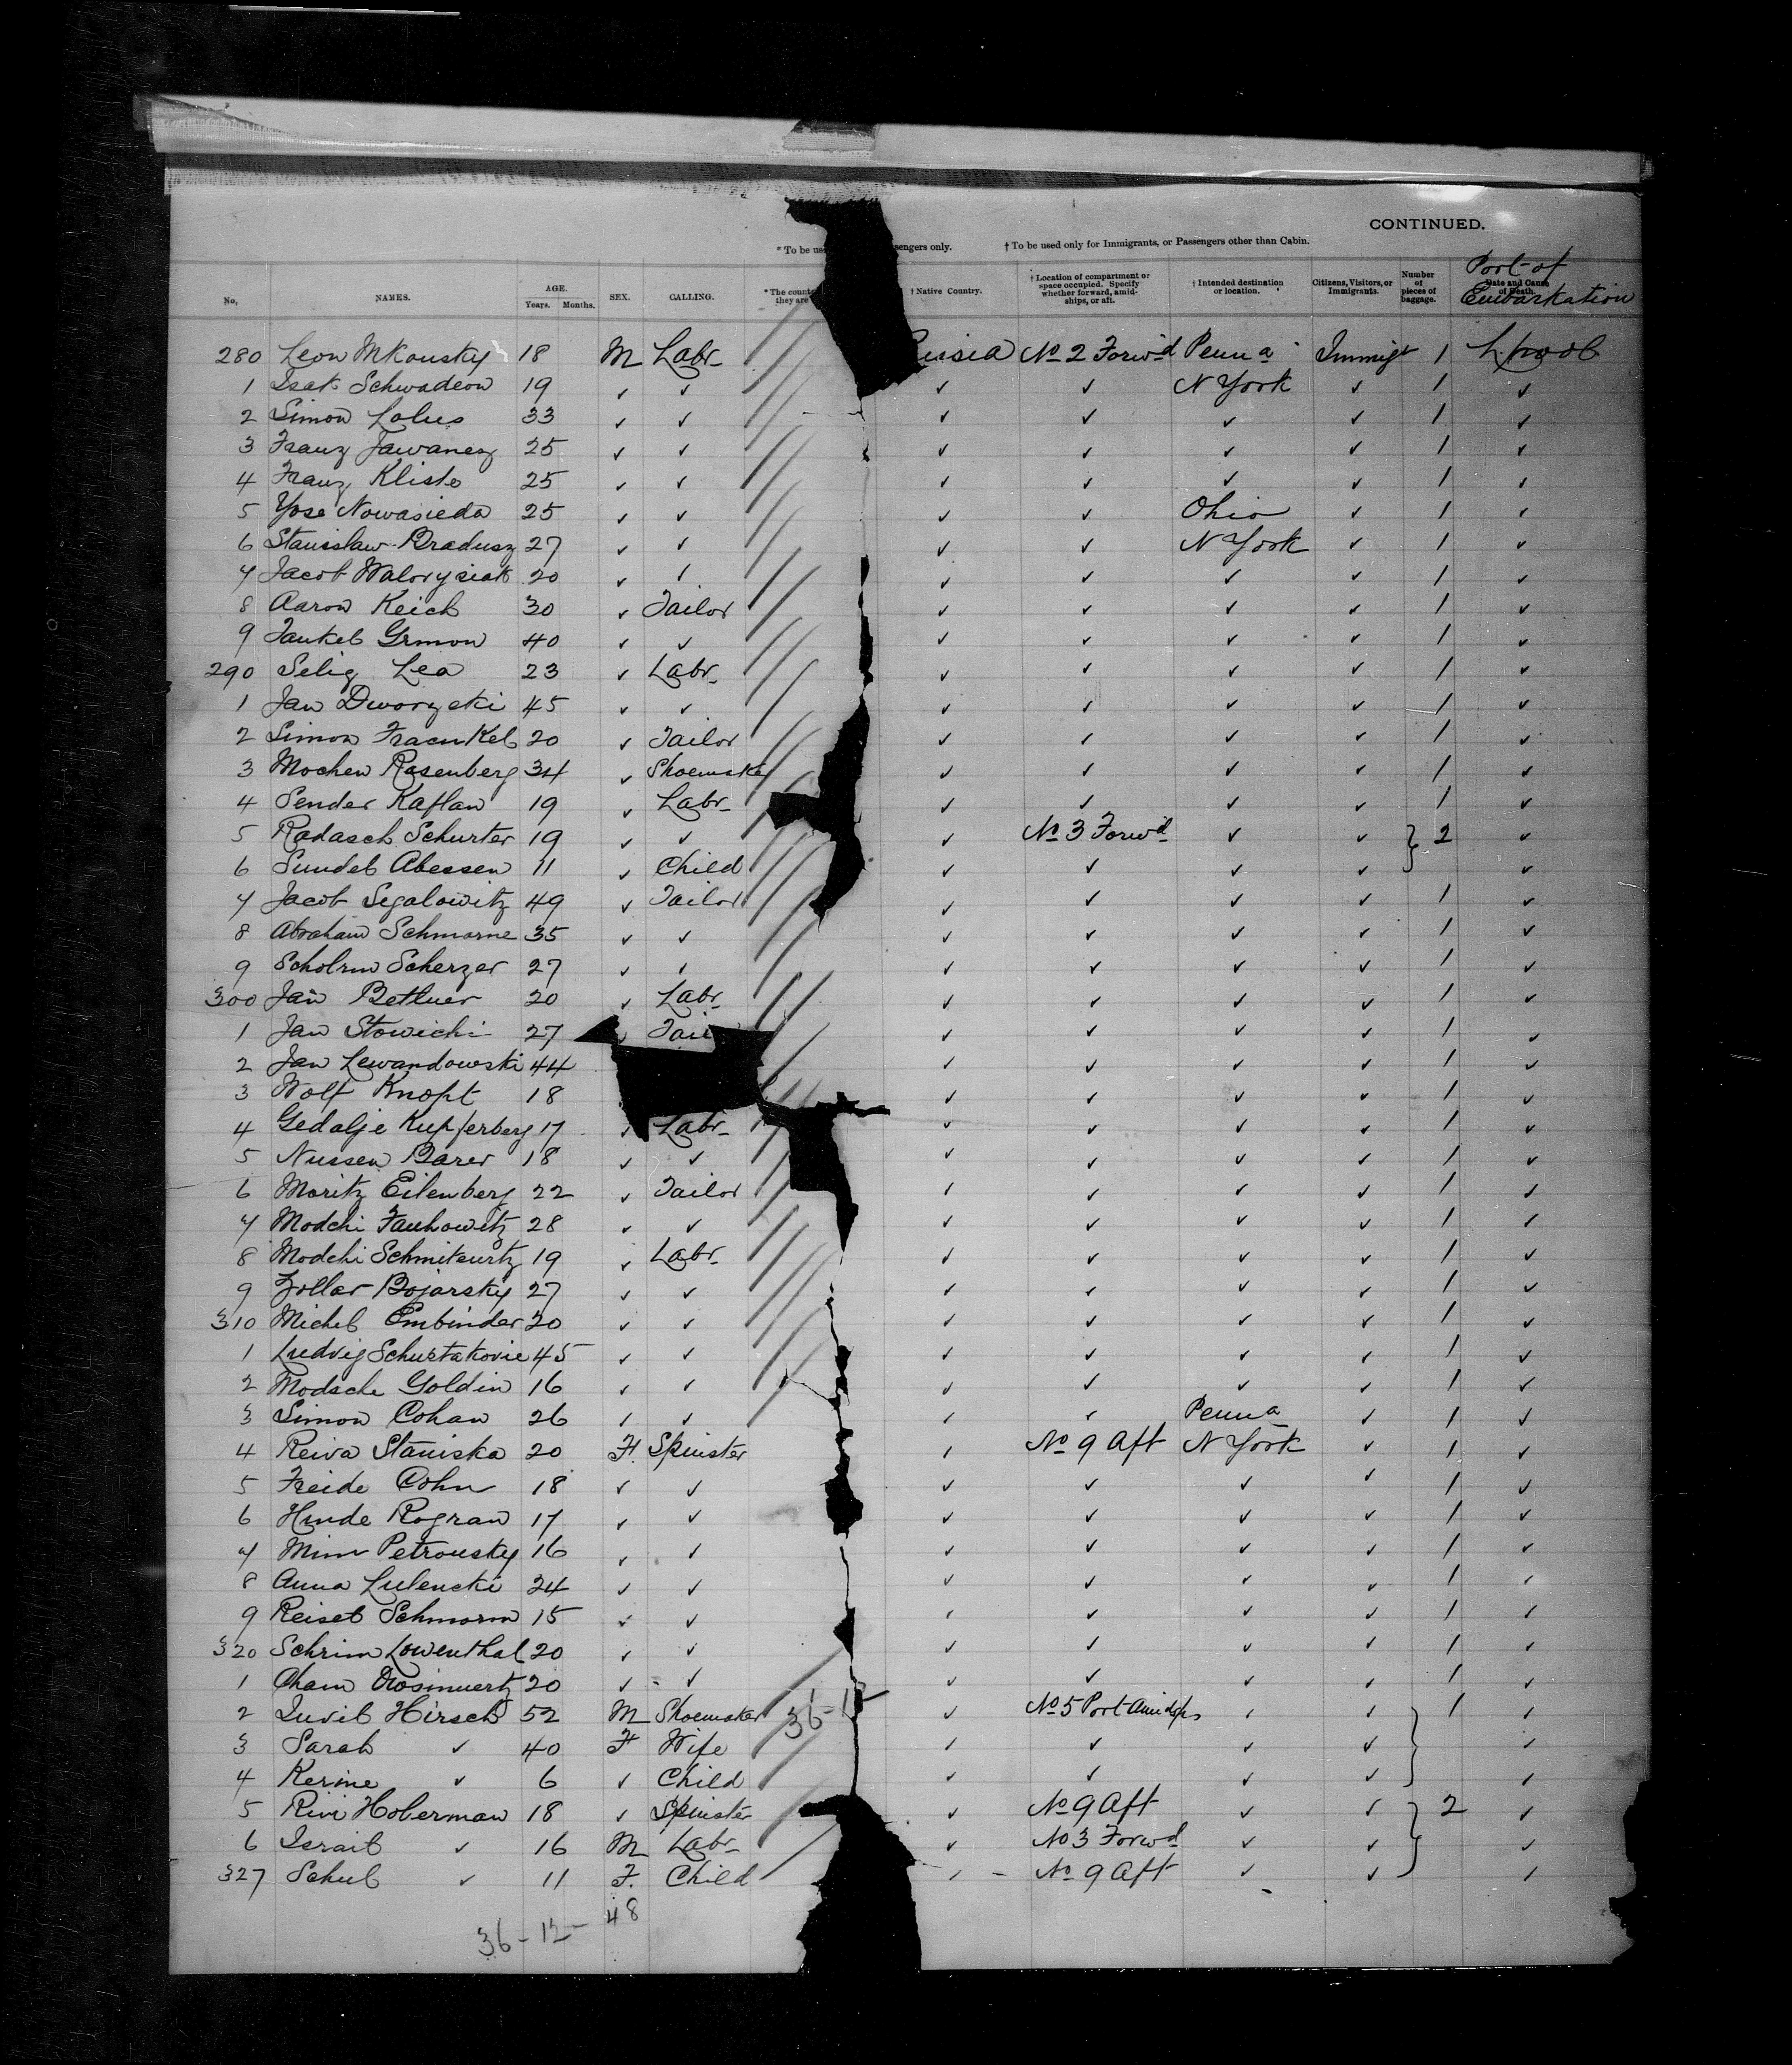 CONTINUED.
* To be us sengers only. † To be used only for Immigrants, or Passengers other than Cabin.
No. NAMES. AGE. Years. Months. SEX. CALLING. * The count they are † Native Country. † Location of compartment or space occupied. Specify whether forward, amidships, or aft. † Intended destination or location. Citizens, Visitors, or Immigrants. Number of pieces of baggage. Date and Cause of Death. Port of Embarkation
280 Leon Mkousky 18 M Labr ussia No 2 Forwd Penna Immigt 1 L'pool
1 Isak Schwadeon 19 ✓ ✓ ✓ ✓ N York ✓ 1 ✓
2 Simon Lolus 33 ✓ ✓ ✓ ✓ ✓ ✓ 1 ✓
3 Franz Jawanez 25 ✓ ✓ ✓ ✓ ✓ ✓ 1 ✓
4 Franz Klisto 25 ✓ ✓ ✓ ✓ ✓ ✓ 1 ✓
5 Yose Nowasieda 25 ✓ ✓ ✓ ✓ Ohio ✓ 1 ✓
6 Stanislaw Bradusz 27 ✓ ✓ ✓ ✓ N York ✓ 1 ✓
7 Jacob Walorysiak 20 ✓ ✓ ✓ ✓ ✓ ✓ 1 ✓
8 Aaron Reich 30 ✓ Tailor ✓ ✓ ✓ ✓ 1 ✓
9 Jankel Grmon 40 ✓ ✓ ✓ ✓ ✓ ✓ 1 ✓
290 Selig Lea 23 ✓ Labr ✓ ✓ ✓ ✓ 1 ✓
1 Jan Dworzcki 45 ✓ ✓ ✓ ✓ ✓ ✓ 1 ✓
2 Simon Fraenkel 20 ✓ Tailor ✓ ✓ ✓ ✓ 1 ✓
3 Mochen Rosenberg 34 ✓ Shoemaker ✓ ✓ ✓ ✓ 1 ✓
4 Sender Kaflan 19 ✓ Labr ✓ ✓ ✓ ✓ 1 ✓
5 Radasch Schurter 19 ✓ ✓ ✓ No 3 Forwd ✓ ✓ 2 ✓
6 Sundel Abessen 11 ✓ Child ✓ ✓ ✓ ✓ ✓
7 Jacob Segalowitz 49 ✓ Tailor ✓ ✓ ✓ ✓ 1 ✓
8 Abraham Schmorne 35 ✓ ✓ ✓ ✓ ✓ ✓ 1 ✓
9 Scholrm Scherzer 27 ✓ ✓ ✓ ✓ ✓ ✓ 1 ✓
300 Jan Bettner 20 ✓ Labr ✓ ✓ ✓ ✓ 1 ✓
1 Jan Stowichi 27 Tail ✓ ✓ ✓ ✓ 1 ✓
2 Jan Lewandowski 44 ✓ ✓ ✓ ✓ 1 ✓
3 Wolf Knopt 18 ✓ ✓ ✓ ✓ 1 ✓
4 Gedalje Kupferberg 17 ✓ Labr ✓ ✓ ✓ ✓ 1 ✓
5 Nussen Barer 18 ✓ ✓ ✓ ✓ ✓ ✓ 1 ✓
6 Moritz Eilenberg 22 ✓ Tailor ✓ ✓ ✓ ✓ 1 ✓
7 Modchi Fankowitz 28 ✓ ✓ ✓ ✓ ✓ ✓ 1 ✓
8 Modchi Schmiteurtz 19 ✓ Labr ✓ ✓ ✓ ✓ 1 ✓
9 Zollar Bojarsky 27 ✓ ✓ ✓ ✓ ✓ ✓ 1 ✓
310 Michel Embinder 20 ✓ ✓ ✓ ✓ ✓ ✓ 1 ✓
1 Ludvig Schustakovie 45 ✓ ✓ ✓ ✓ ✓ ✓ 1 ✓
2 Modsche Goldin 16 ✓ ✓ ✓ ✓ ✓ ✓ 1 ✓
3 Simon Cohan 26 ✓ ✓ ✓ ✓ Penna ✓ 1 ✓
4 Reiva Staniska 20 F. Spinster ✓ No 9 Aft N York ✓ 1 ✓
5 Freide Cohn 18 ✓ ✓ ✓ ✓ ✓ ✓ 1 ✓
6 Hinde Rogran 17 ✓ ✓ ✓ ✓ ✓ ✓ 1 ✓
7 Mim Petrousky 16 ✓ ✓ ✓ ✓ ✓ ✓ 1 ✓
8 Anna Lulencki 24 ✓ ✓ ✓ ✓ ✓ ✓ 1 ✓
9 Reisel Schmorm 15 ✓ ✓ ✓ ✓ ✓ ✓ 1 ✓
320 Schrim Lowenthal 20 ✓ ✓ ✓ ✓ ✓ ✓ 1 ✓
1 Cham 20 ✓ ✓ ✓ ✓ ✓ ✓ 1 ✓
2 Hirsch 52 M Shoemaker 36-12 ✓ No 5 Port Amidsps ✓ ✓ 1 ✓
3 Sarah ✓ 40 F Wife ✓ ✓ ✓ ✓ ✓
4 Kerine ✓ 6 ✓ Child ✓ ✓ ✓ ✓ ✓
5 Rivi Hoberman 18 ✓ Spinster ✓ No 9 Aft ✓ ✓ 2 ✓
6 Israil ✓ 16 M Labr ✓ No 3 Forwd ✓ ✓ ✓
327 Schul ✓ 11 F. Child ✓ No 9 Aft ✓ ✓ ✓
36-12- 48